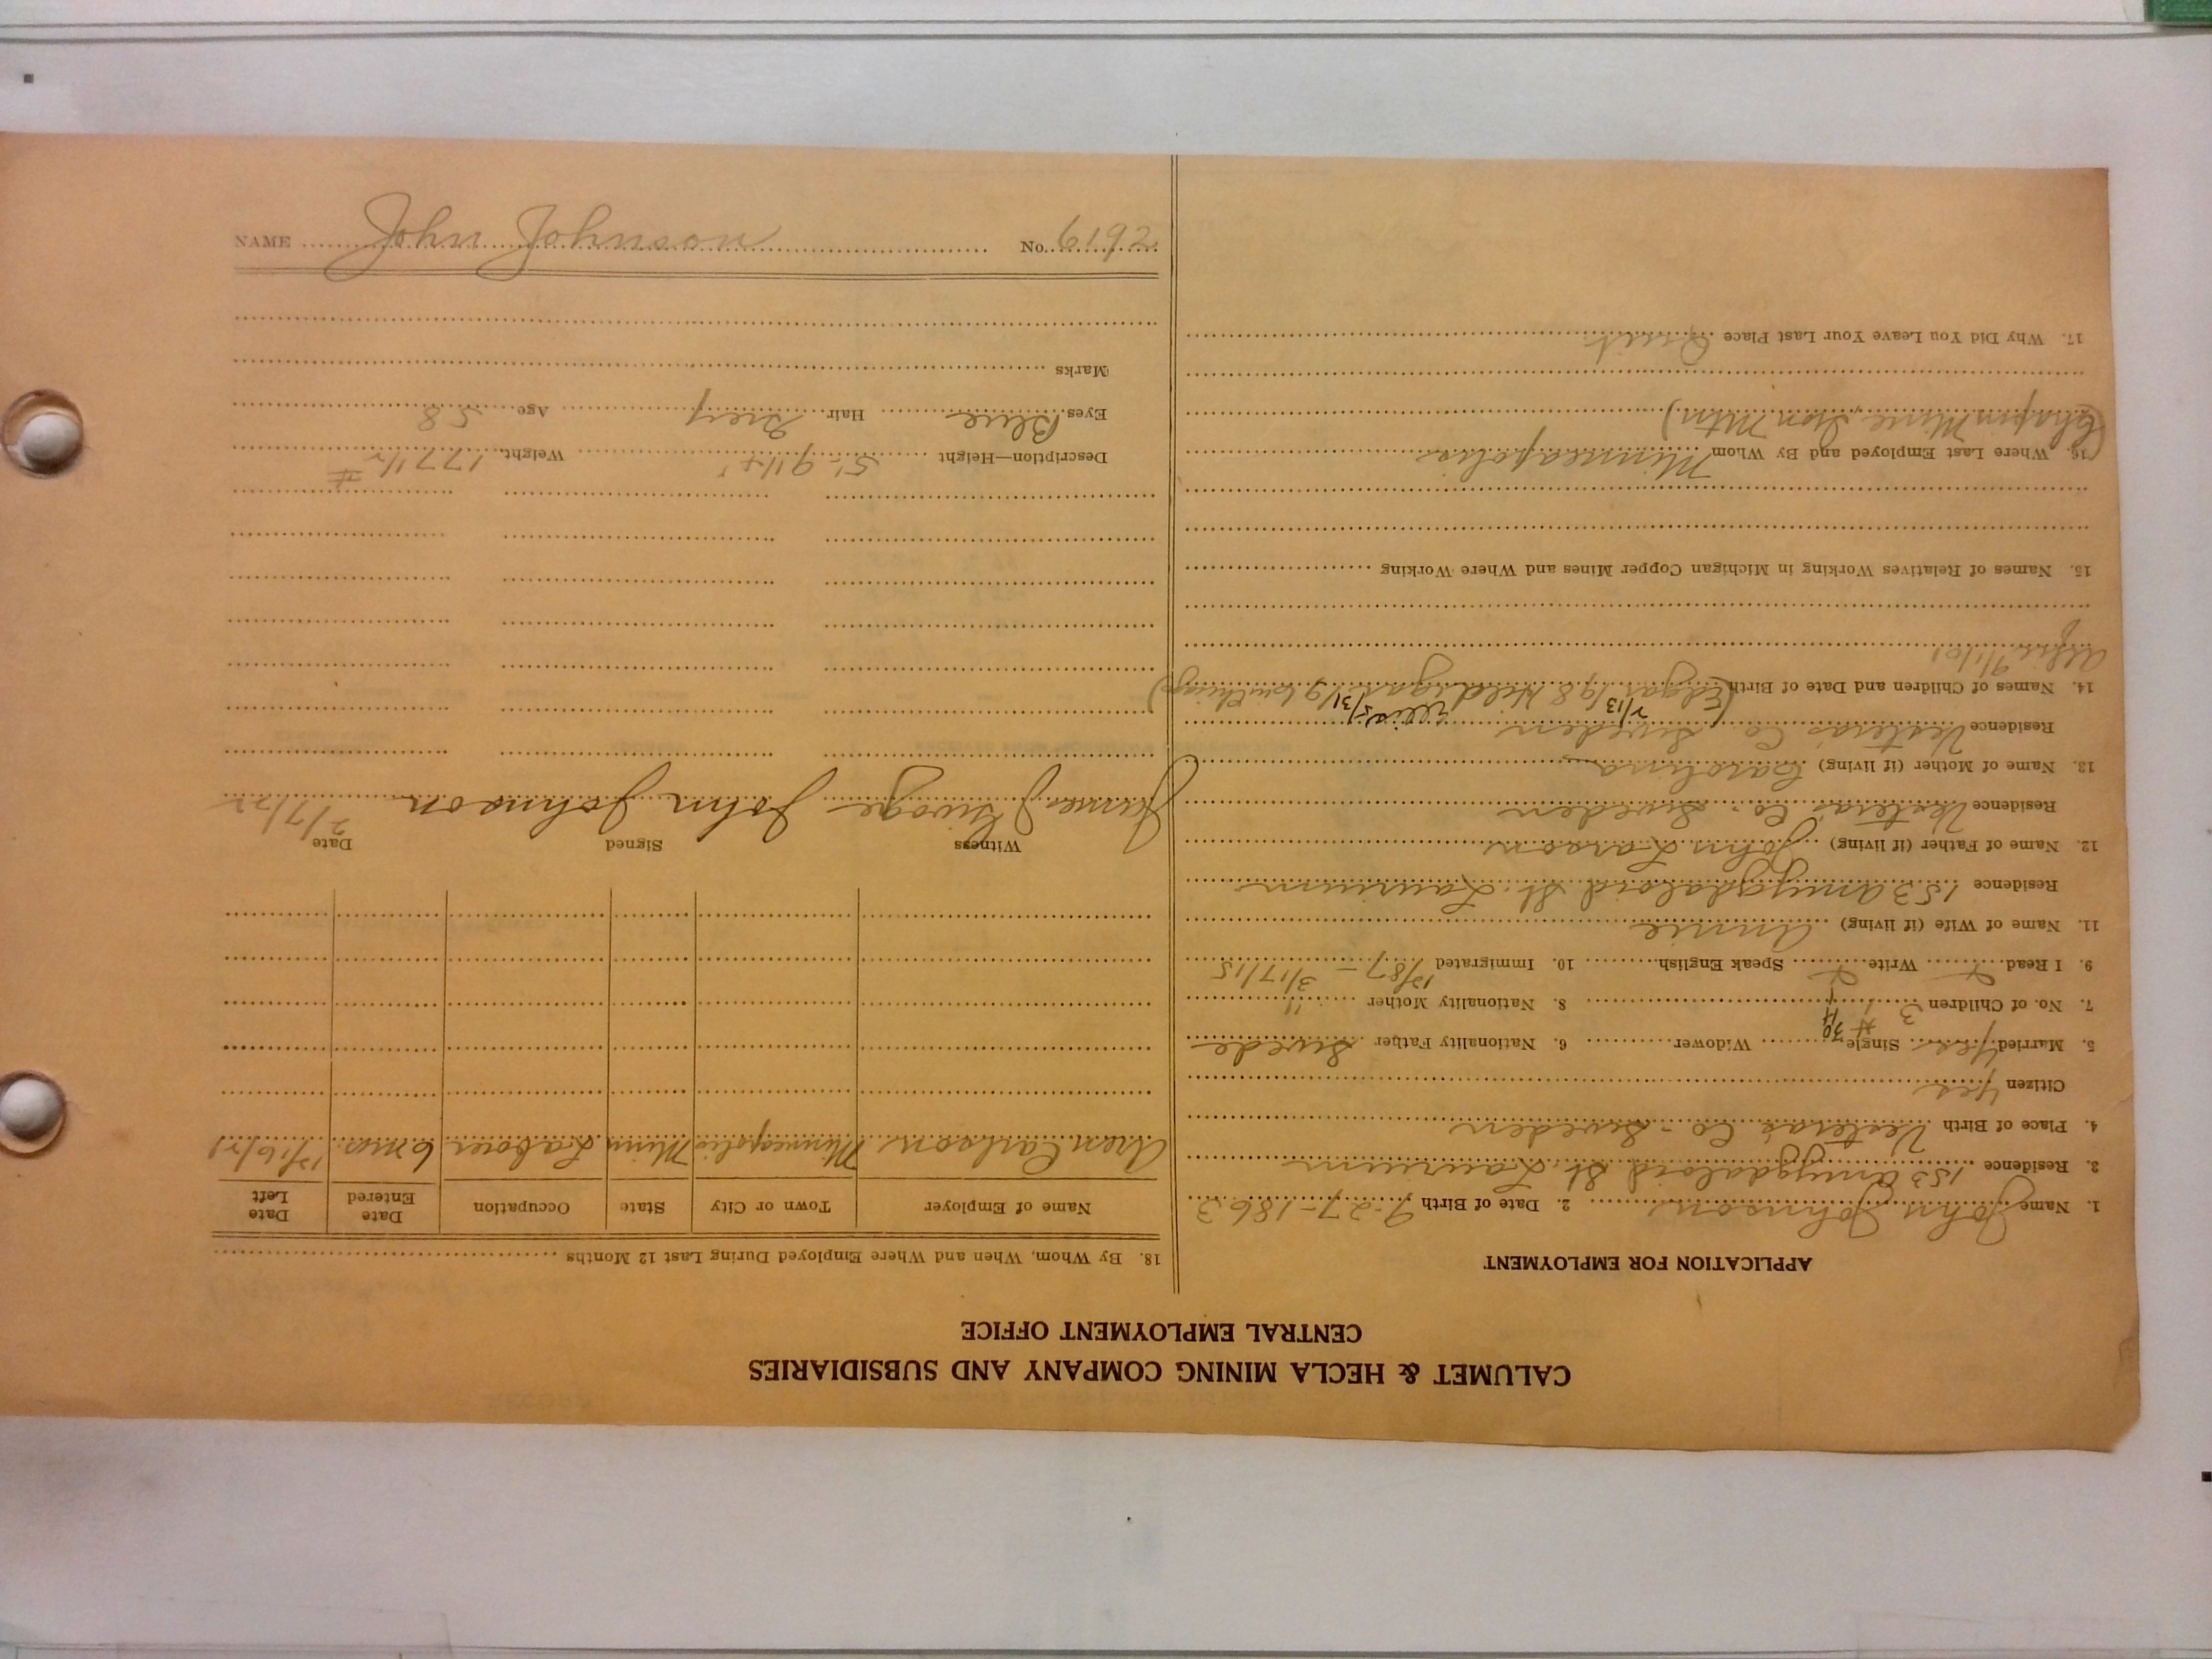 CALUMET & HECLA MINING COMPANY AND SUBSIDIARIES
CENTRAL EMPLOYMENT OFFICE
APPLICATION FOR EMPLOYMENT
1. Name John Johnson 2. Date of Birth 9-27-1863
3. Residence 153 Amygdaloid St. Laurium
4. Place of Birth Vesteras Co. Sweden
Citizen Yes
5. Married Yes Single Widower 6. Nationality Father Swede
7. No. of Children 3 8. Nationality Mother "
9. I Read Write Speak English 10. Immigrated 3/17/15
11. Name of Wife (if living) Annie
Residence 153 Amygdaloid St. Laurium
12. Name of Father (if living) John Larson
Residence Vesteras Co. Sweden
13. Name of Mother (if living) Carolina
Residence Vesteras Co. Sweden
14. Names of Children and Date of Birth (Edgar
15. Names of Relatives Working in Michigan Copper Mines and Where Working
16. Where Last Employed and By Whom Minneapolis
(Chapin Mine, Iron Mtn)
17. Why Did You Leave Your Last Place Quit
18. By Whom, When and Where Employed During Last 12 Months
Name of Employer Town or City State Occupation Date Entered Date Left
Carlson Minneapolis Minn Laborer 6 mos.
Witness Signed Date
James John Johnson 2/7/22
Description—Height 5'- 9 Weight 177 1/2 #
Eyes Blue Hair Grey Age 58
Marks
NAME John Johnson No. 6192